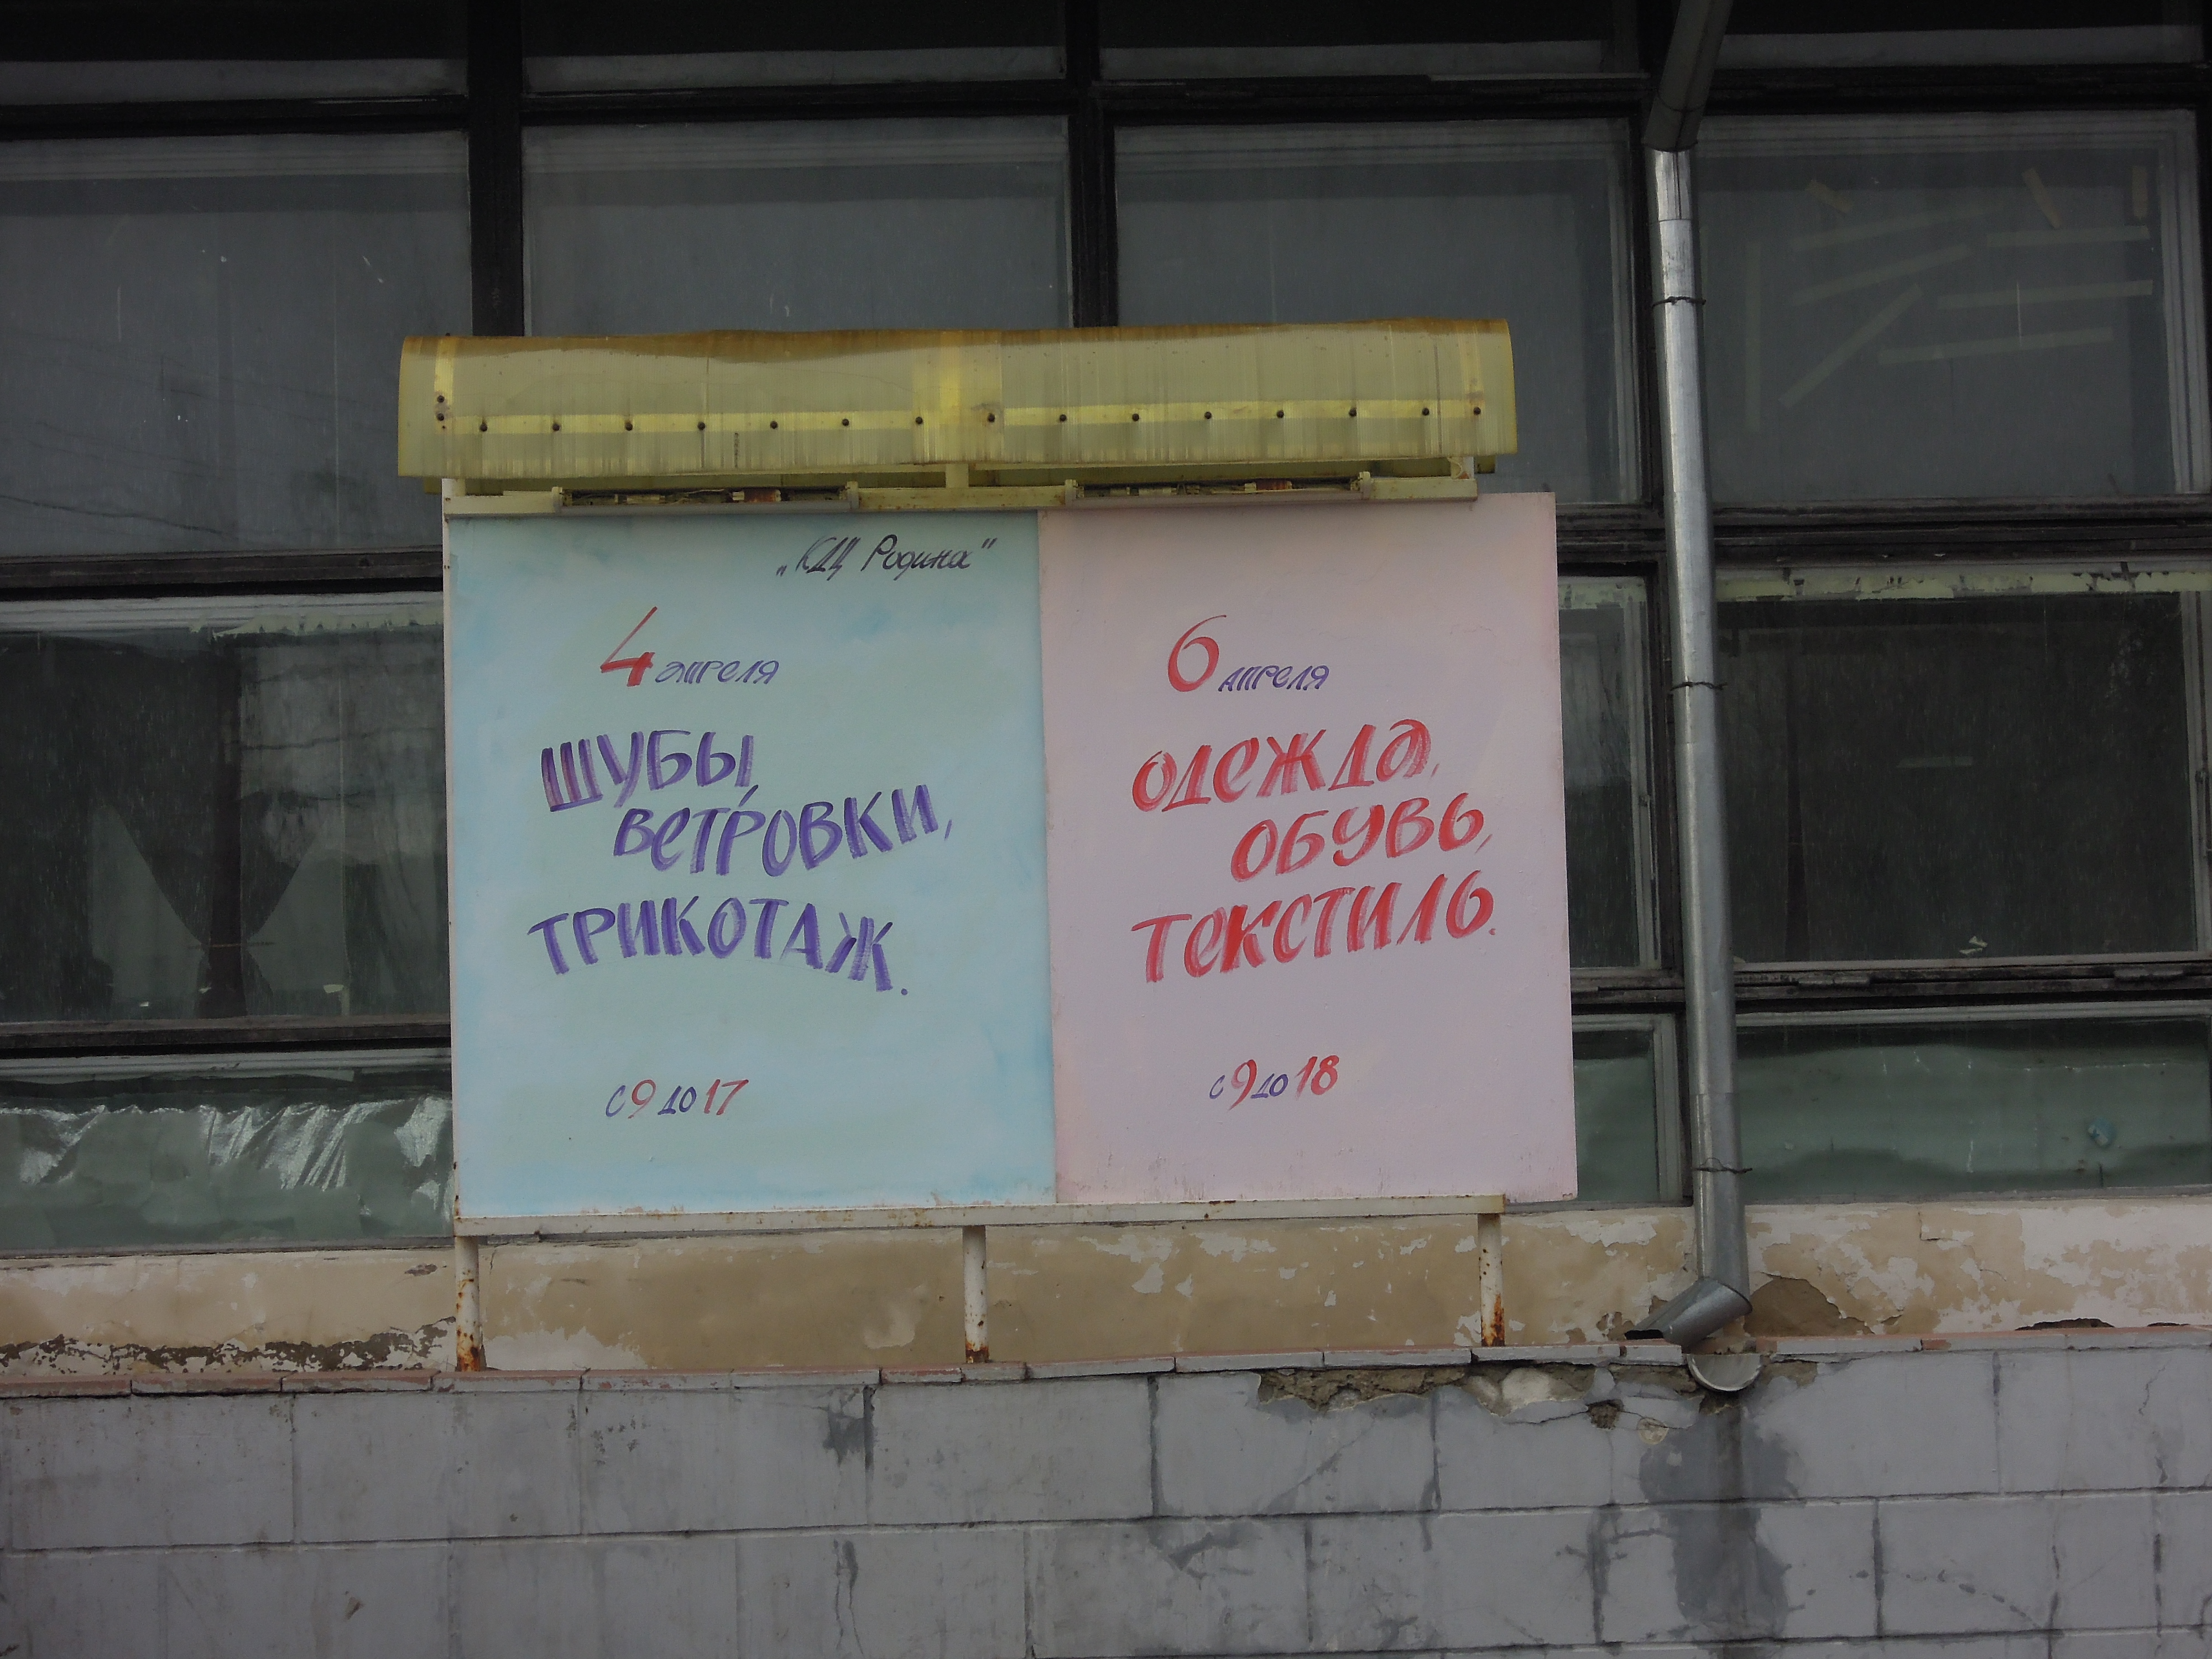 „КДЦ Родина"
4 апреля
ШУБЫ,
ВЕТРОВКИ,
ТРИКОТАЖ.
с 9 до 17
6 апреля
ОДЕЖДА,
ОБУВЬ,
ТЕКСТИЛЬ.
с 9 до 18